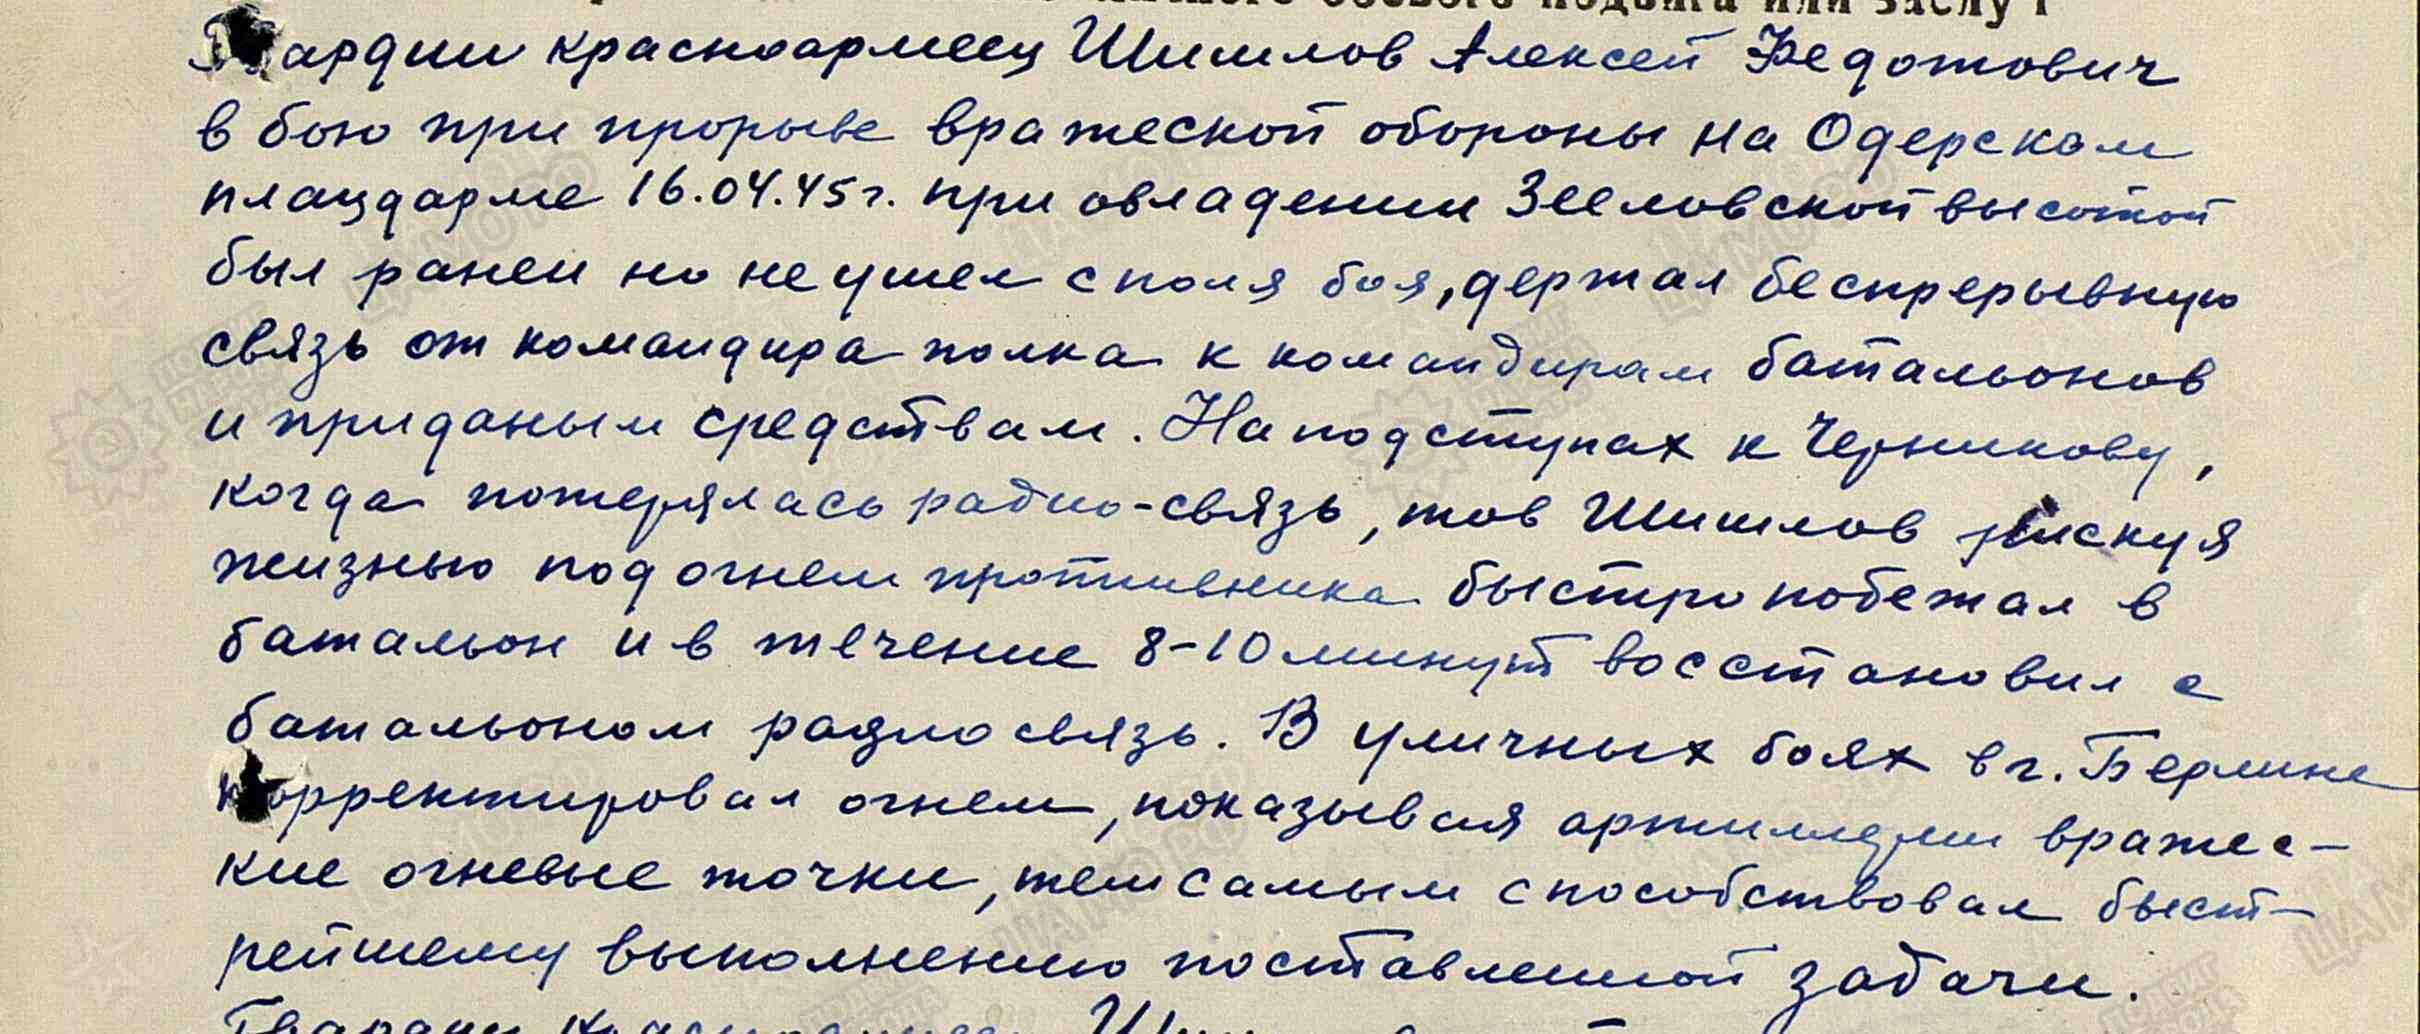 личного боевого подвига или заслуг
Гвардии красноармеец Шишлов Алексей Федотович
в бою при прорыве вражеской обороны на Одерском
плацдарме 16.04.45г. при овладении Зееловской высотой
был ранен но не ушел с поля боя, держал беспрерывную
связь от командира полка к командирам батальонов
и приданым средствам. На подступах к Черникову,
когда потерялась радио-связь, тов Шишлов рискуя
жизнью под огнем противника быстро побежал в
батальон и в течение 8-10 минут восстановил с
батальоном радиосвязь. В уличных боях в г. Берлине
корректировал огнем, показывая артиллерии вражес-
кие огневые точки, тем самым способствовал быст-
рейшему выполнению поставленной задачи.
Гвардии красноармеец